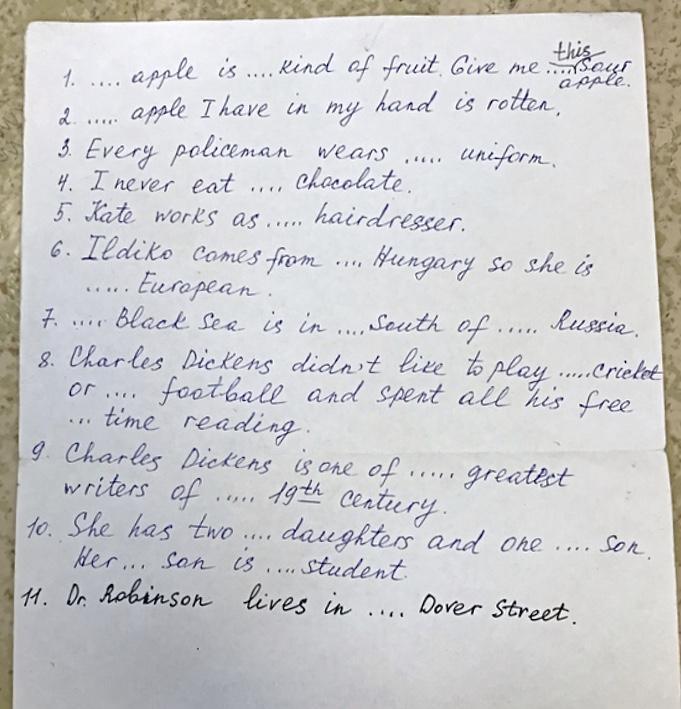 this
1. .... apple is .... kind of fruit. Give me .... sour
apple.
2. ..... apple I have in my hand is rotten.
3. Every policeman wears ..... uniform.
4. I never eat .... chocolate.
5. Kate works as ..... hairdresser.
6. Ildiko comes from .... Hungary so she is
..... European.
7. .... Black Sea is in .... South of ..... Russia.
8. Charles Dickens didn't like to play ..... cricket
or .... football and spent all his free
... time reading.
9. Charles Dickens is one of ..... greatest
writers of ..... 19th century.
10. She has two .... daughters and one .... son.
Her ... son is .... student.
11. Dr. Robinson lives in .... Dover Street.